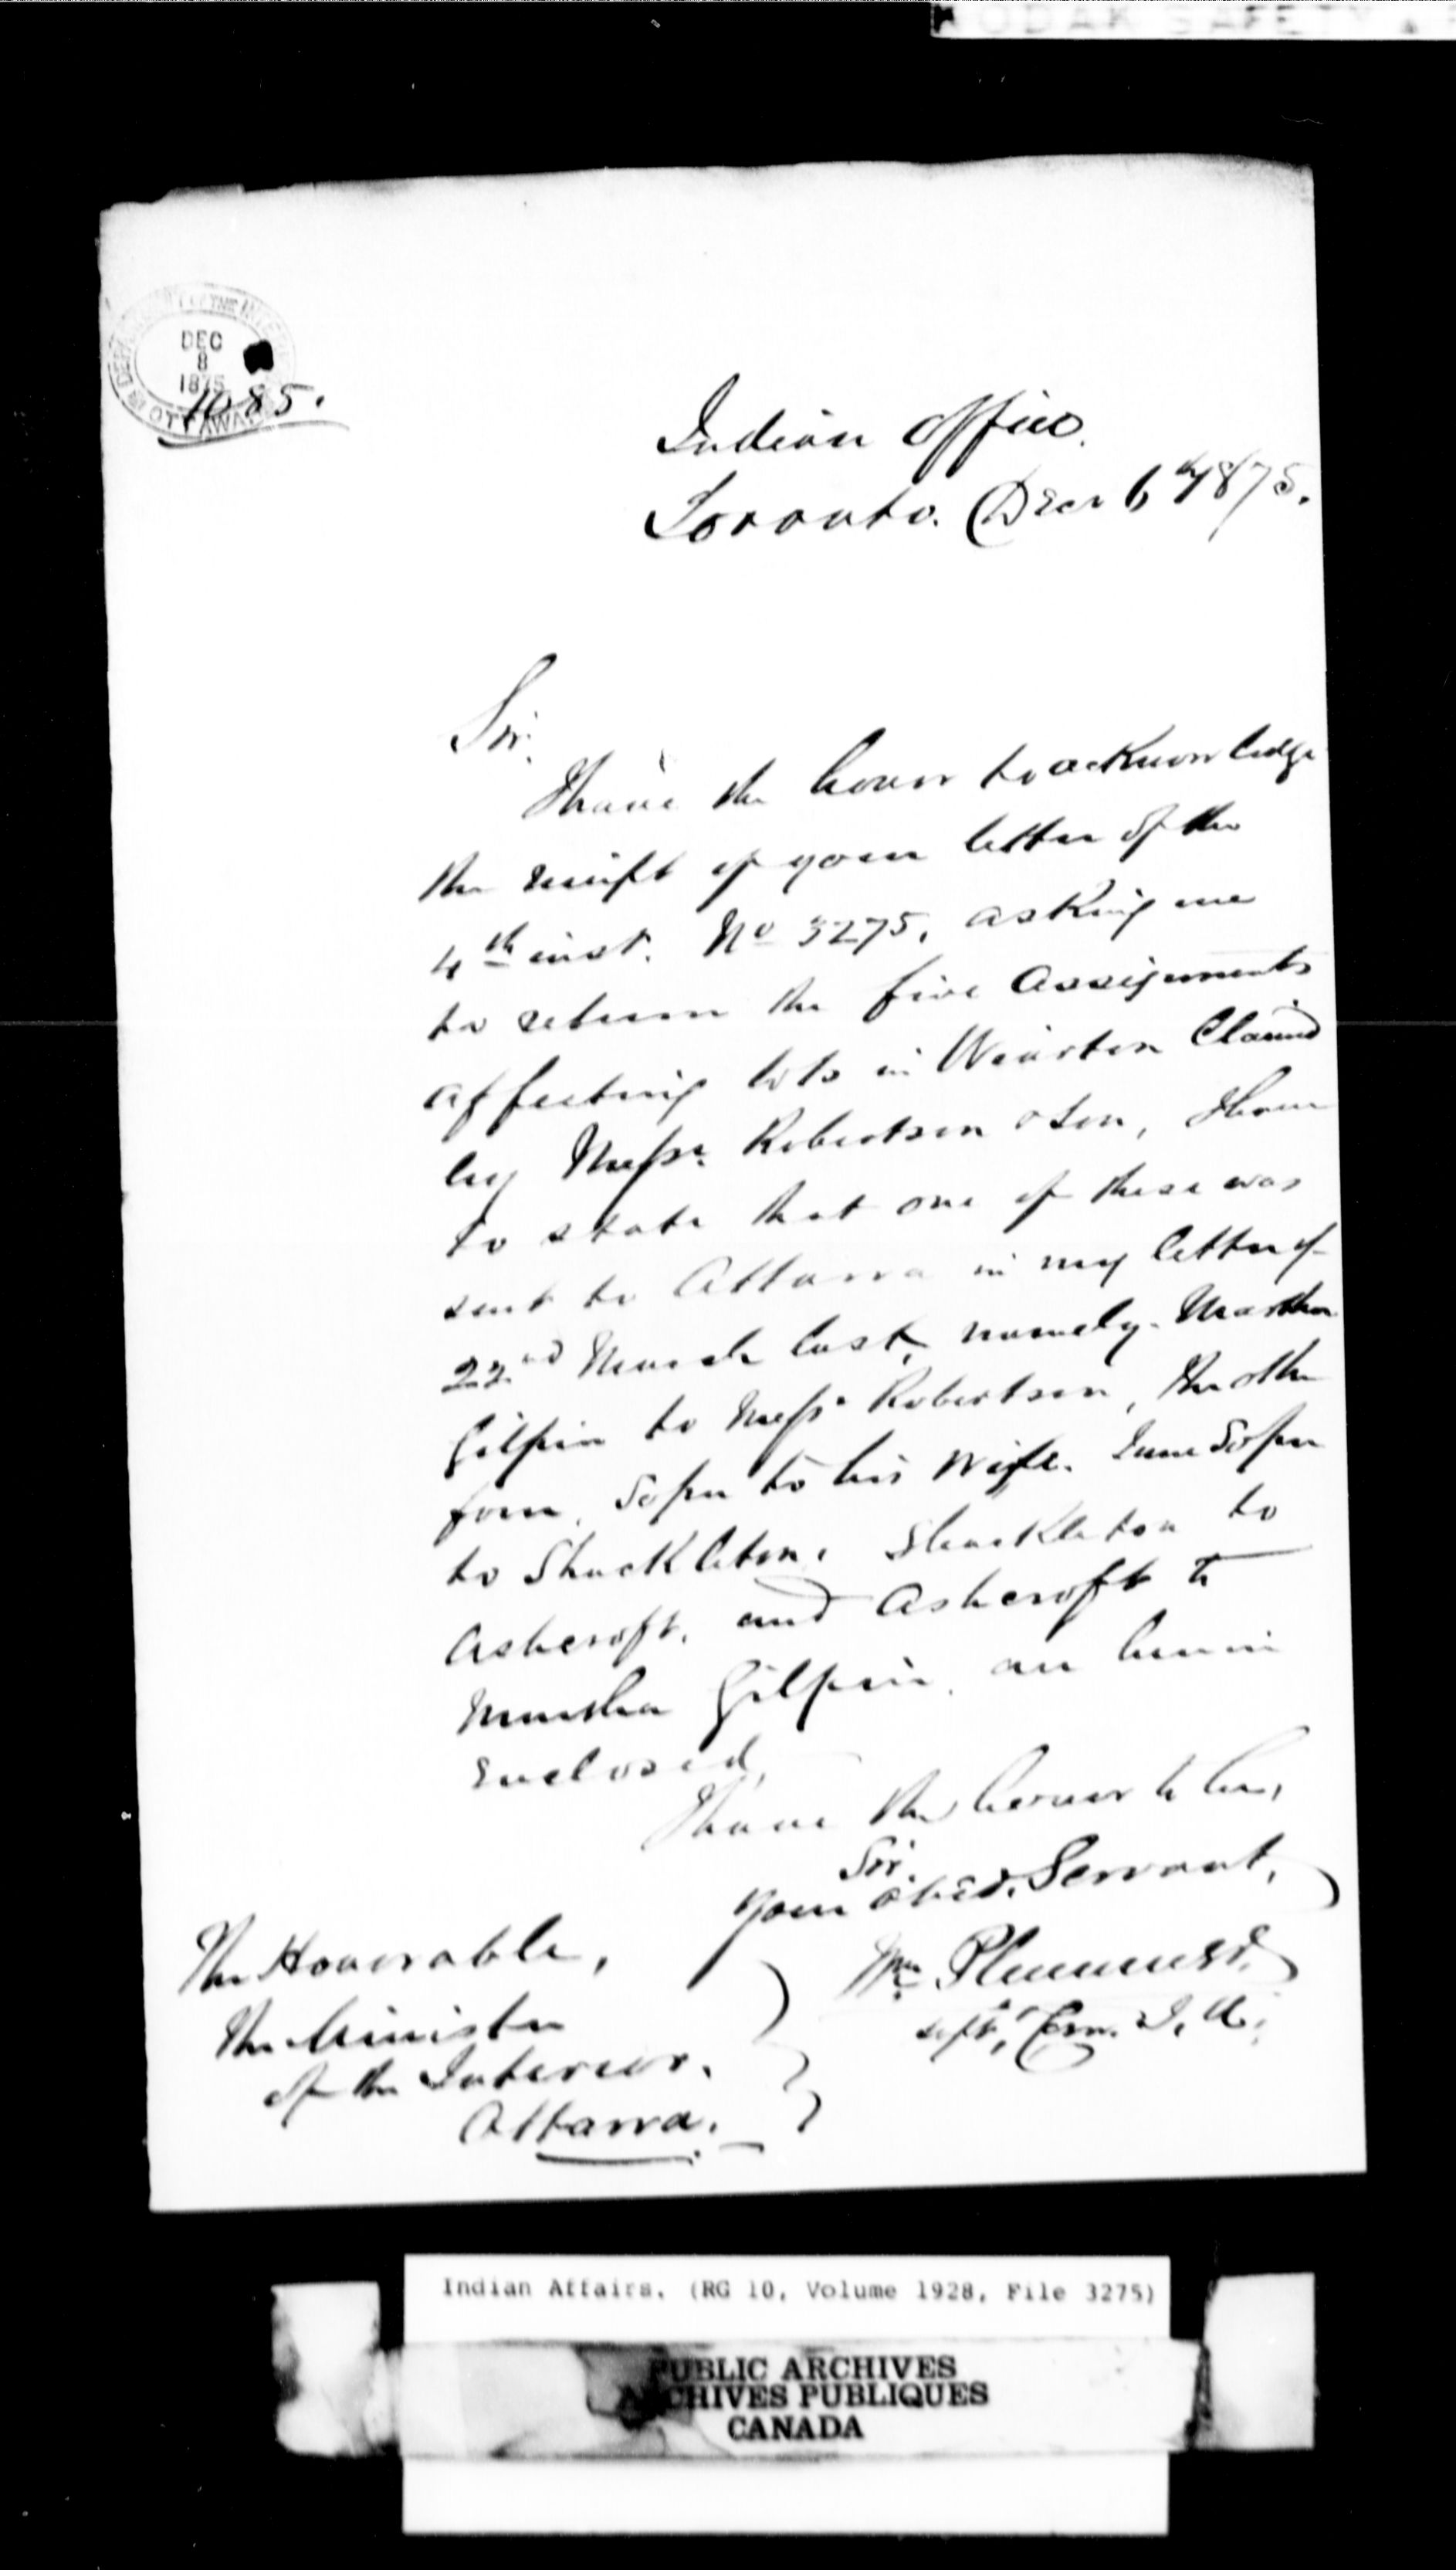 KODAK SAFETY
DEPARTMENT OF THE INTERIOR
DEC
8
1875
OTTAWA
1085.
Indian Office.
Toronto. Decr 6th 1875.
Sir.
I have the honor to acknowledge
the receipt of your letter of the
4th inst. No 3275, asking me
to return the five Assignments
affecting lots in Wiarton Claimed
by Messrs. Robertson & Son, I have
to state that one of these was
sent to Ottawa in my letter of
22nd March last, namely. Martha
Gilpin to Messrs Robertson, the other
four, Soper to his Wife. Jane Soper
to Shackleton, Shackleton to
Ashcroft, and Ashcroft to
Martha Gilpin, are herein
Enclosed,
I have the honor to be,
Sir.
Your Obed. Servant,
Wm Plummer.
Supt, Com. I. A.
The Honorable,
The Minister
of the Interior.
Ottawa.
Indian Affairs. (RG 10, Volume 1928, File 3275)
PUBLIC ARCHIVES
ARCHIVES PUBLIQUES
CANADA